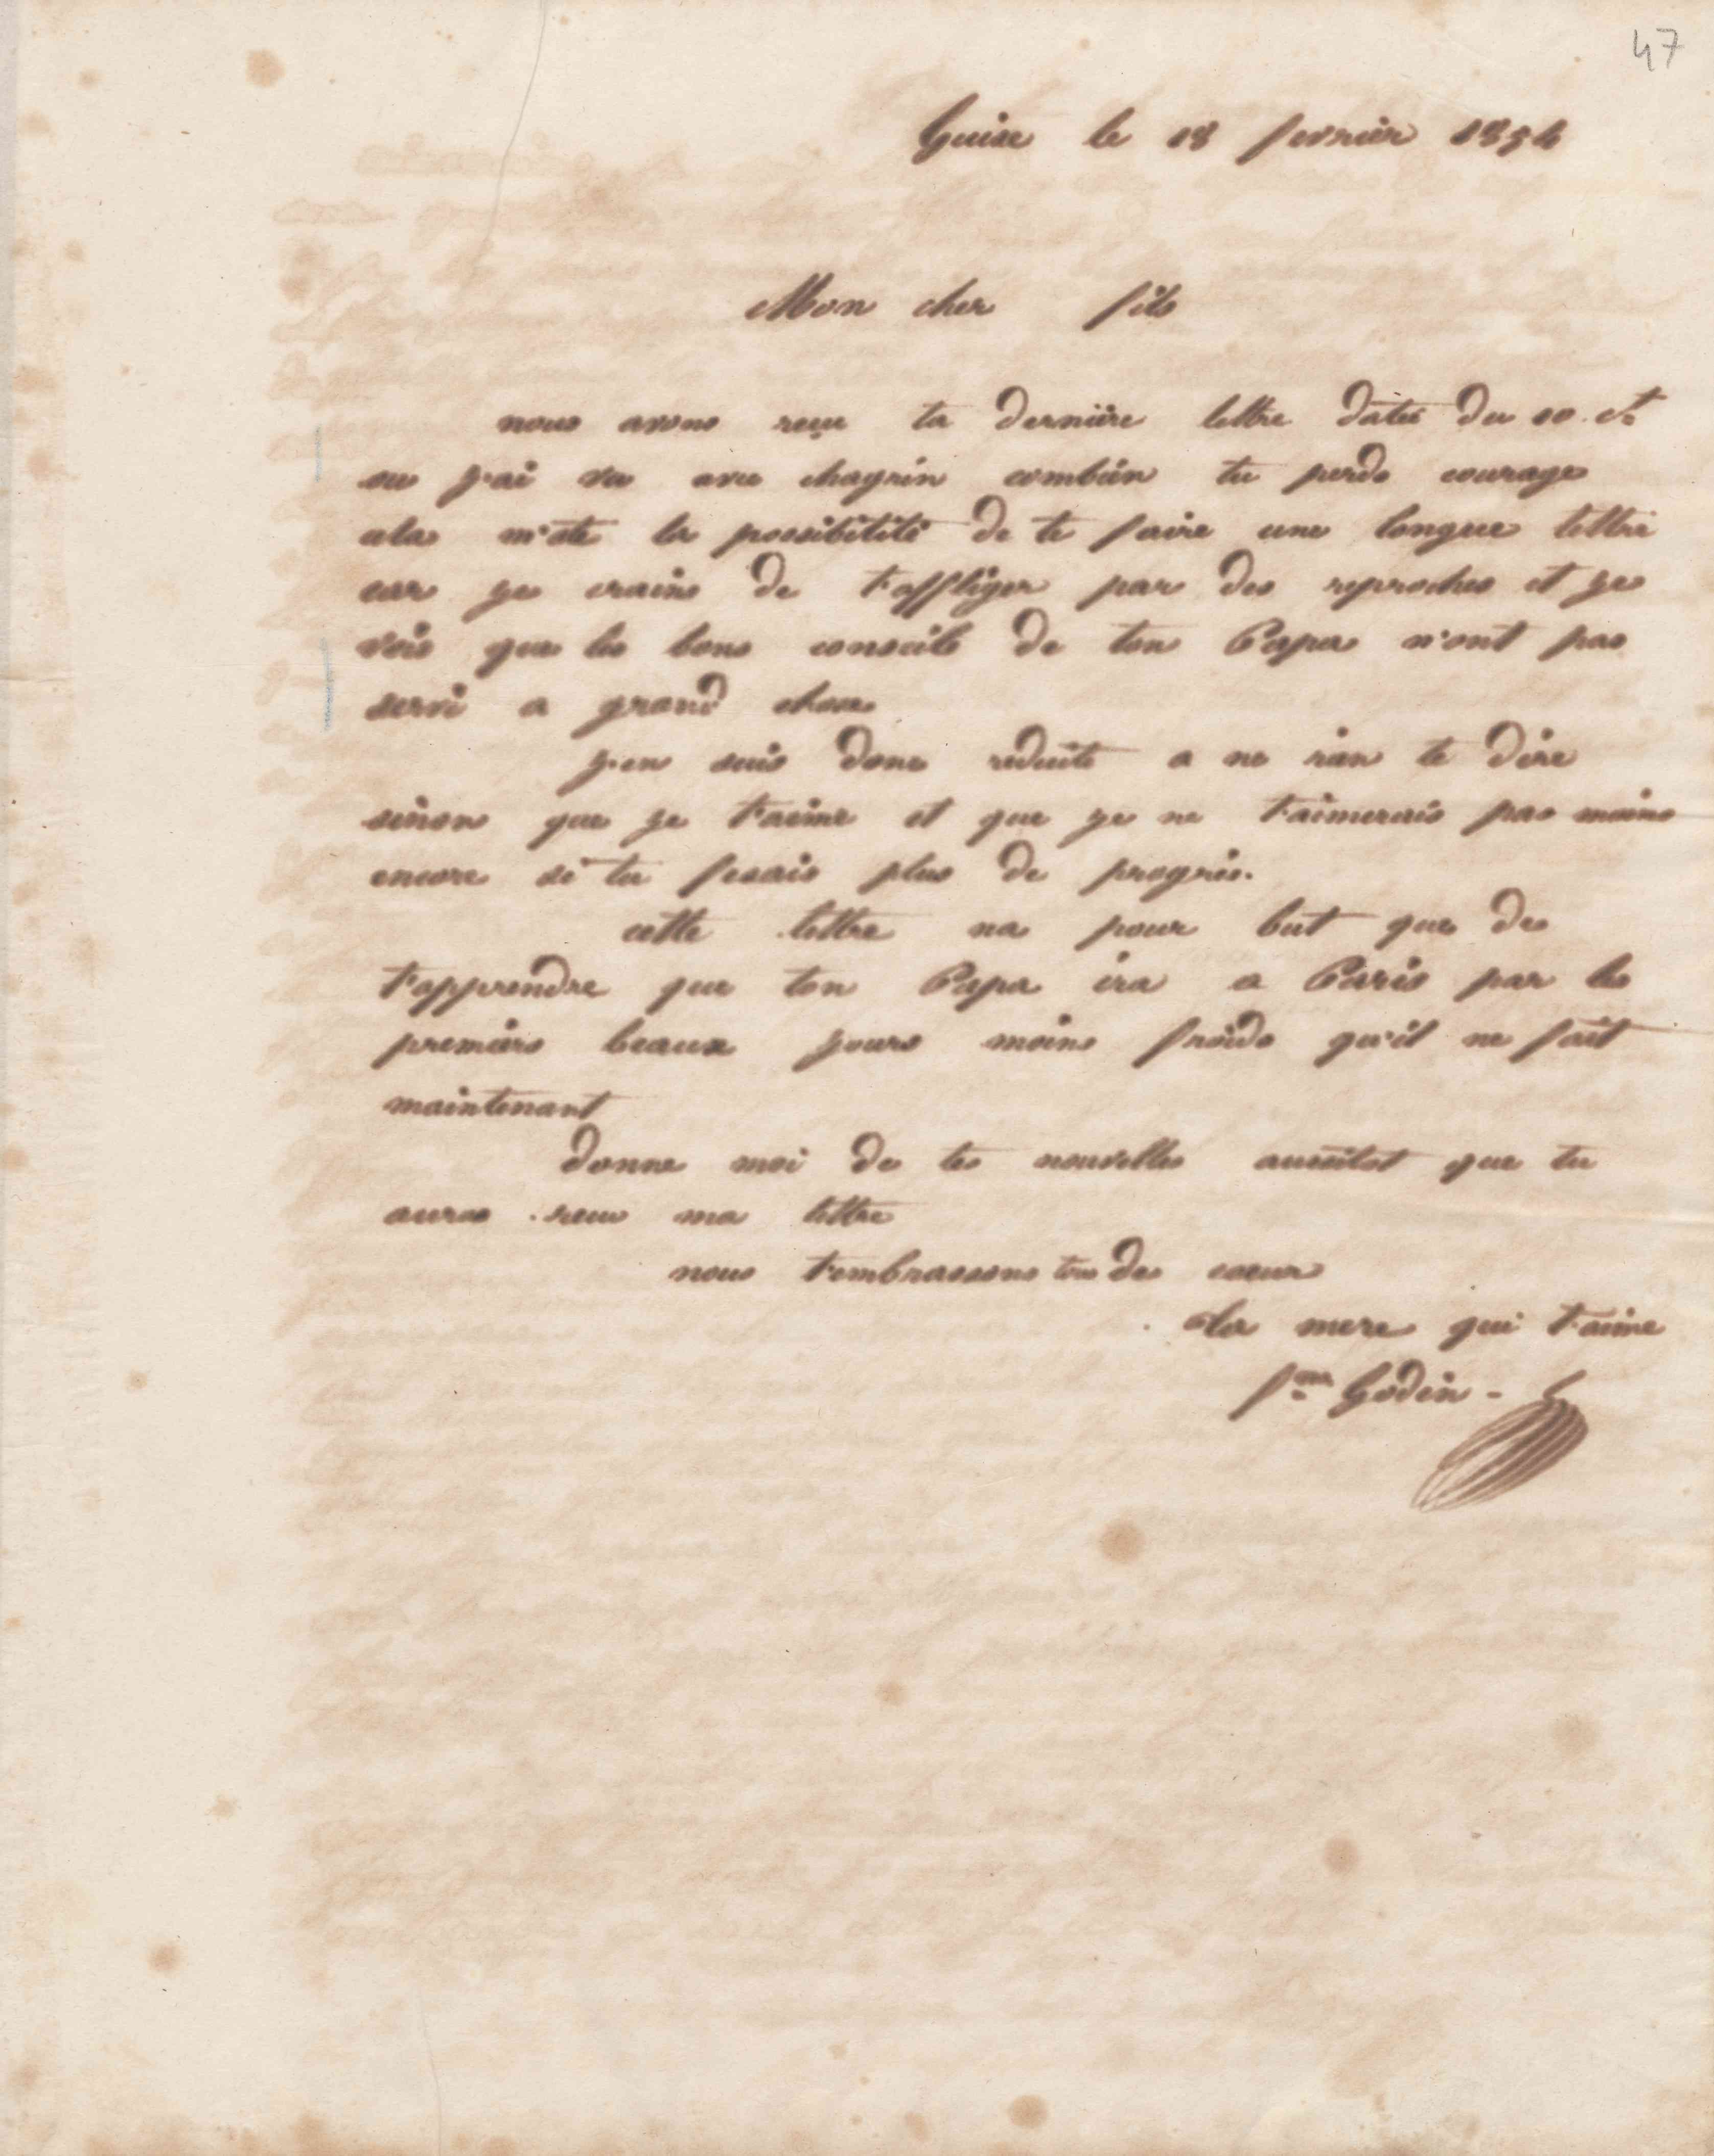 47
Guise le 18 fevrier 1854
Mon cher fils
nous avons reçu ta dernière lettre datée du 10 ct
ou j'ai vu avec chagrin combien tu perds courage
cela m'ote la possibilité de te faire une longue lettre
car je crains de t'affliger par des reproches et je
vois que les bons conseils de ton Papa n'ont pas
servi a grand chose
j'en suis donc reduite a ne rien te dire
sinon que je t'aime et que je ne t'aimerais pas moins
encore si tu fesais plus de progrès.
cette lettre na pour but que de
t'apprendre que ton Papa ira a Paris par les
premiers beaux jours moins froids qu'il ne fait
maintenant
donne moi de tes nouvelles aussitot que tu
auras recu ma lettre
nous t'embrassons tous de coeur
ta mere qui t'aime
fme Godin -